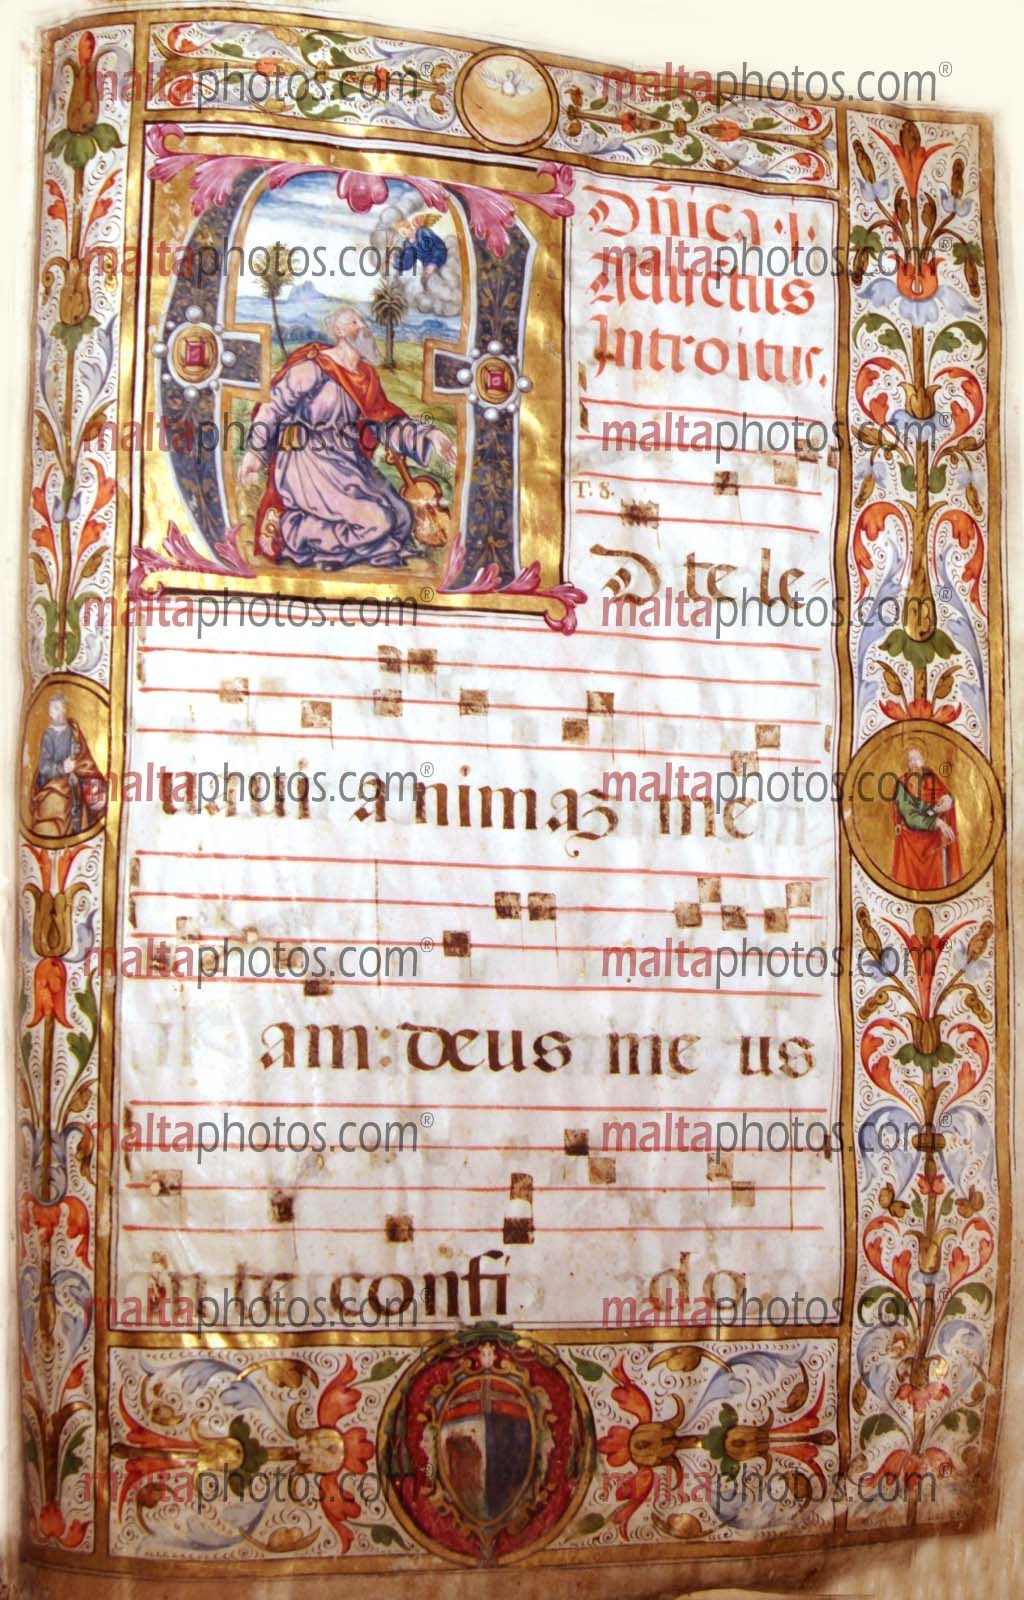 Dñica ·j·
Aduẽtus
Introitus.
T. 8.
AD te le-
uaui animaz me
am: deus me us
in te confi do
maltaphotos.com® maltaphotos.com®
maltaphotos.com® maltaphotos.com®
maltaphotos.com® maltaphotos.com®
maltaphotos.com® maltaphotos.com®
maltaphotos.com® maltaphotos.com®
maltaphotos.com® maltaphotos.com®
maltaphotos.com® maltaphotos.com®
maltaphotos.com® maltaphotos.com®
maltaphotos.com® maltaphotos.com®